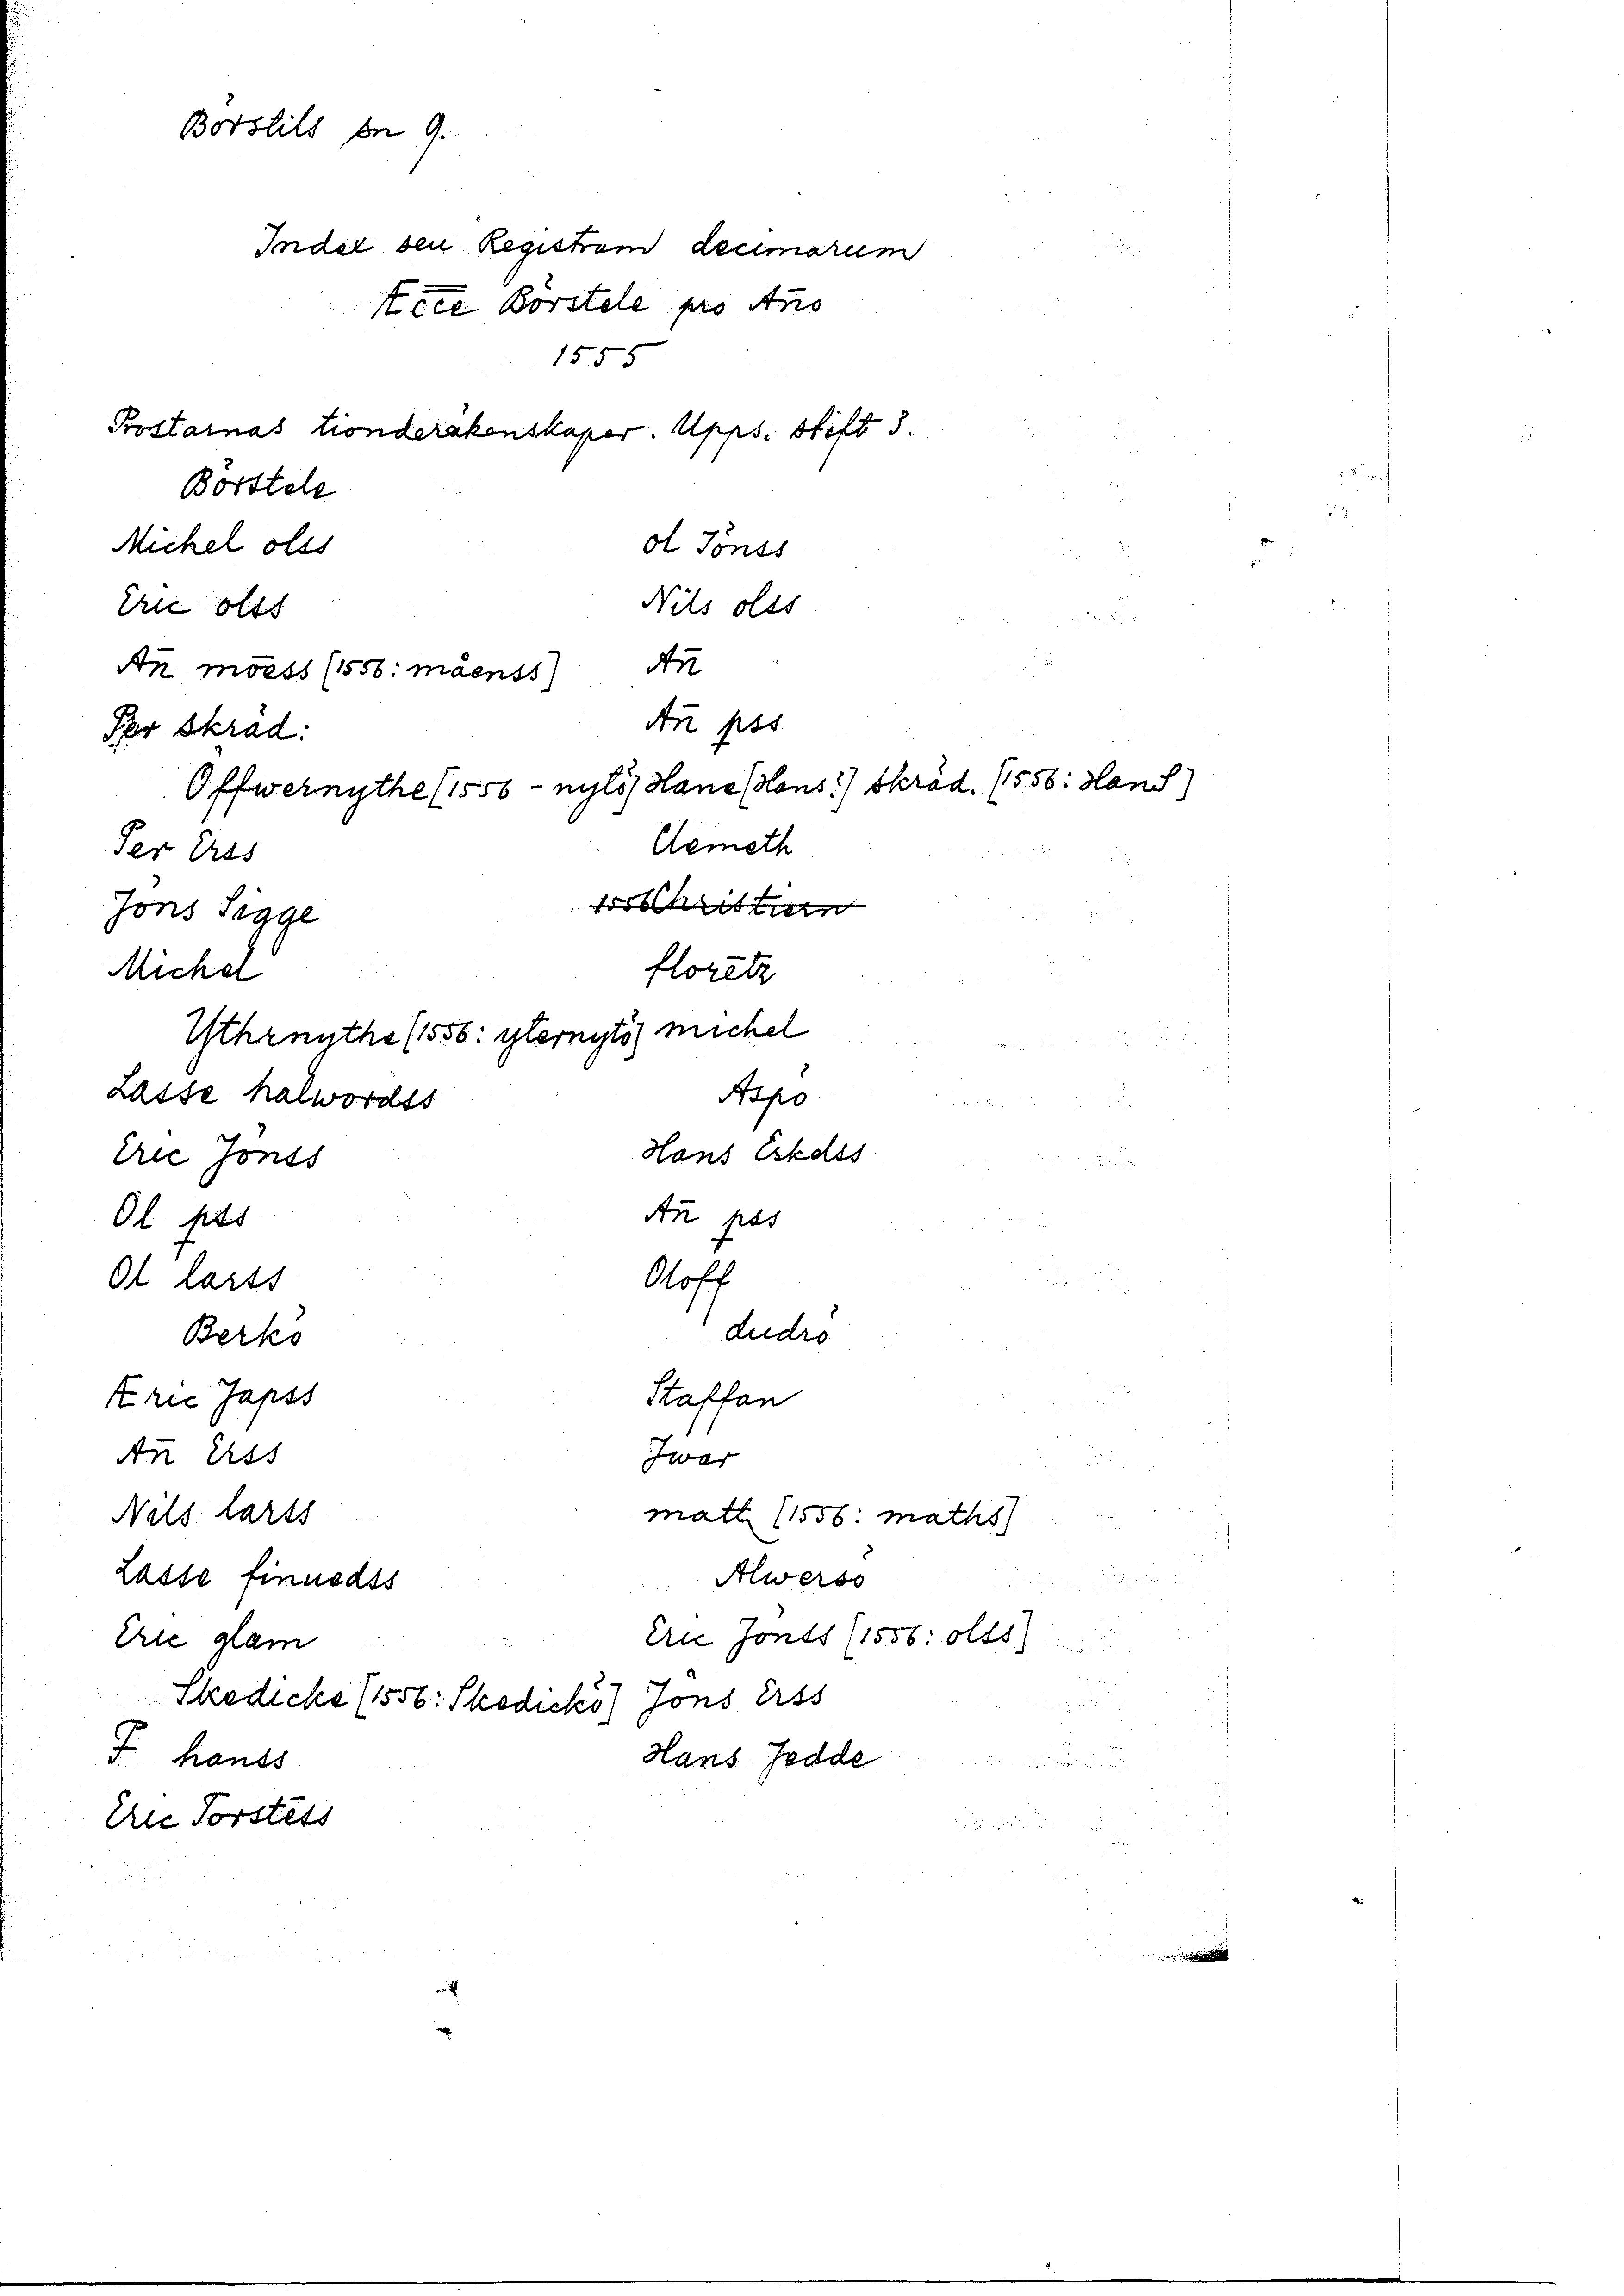 Börstils sn 9.
Index seu Registrum decimarum
Ecce Börstele pro Año
1555
Prostarnas tionderäkenskaper. Upps. stift 3.
Börstele
Michel olss
Eric olss
Añ moess (1556: måenss)
Per skräd:
Offwernythe (1556 - nytö)
Per Erss
Jöns Sigge
Michel
Ythrnythe (1556: yternytö)
Lasse halwordss
Eric Jönss
Ol pss
Ol larss
Berkö
Eric Japss
Añ Erss
Nils larss
Lasse finuedss
Eric glam
Skedicke (1556: Skedickö)
F hanss
Eric Torstēss
ol Jönss
Nils olss
Añ
Añ pss
Hane (Hans?) skräd. (1556: Hans)
Clemeth
1556 Christiern
florētz
michel
Aspö
Hans Eskelss
Añ pss
Oloff
dudrö
Staffan
Iwar
math (1556: maths)
Alwersö
Eric Jönss (1556: olss)
Jöns Erss
Hans Jedde